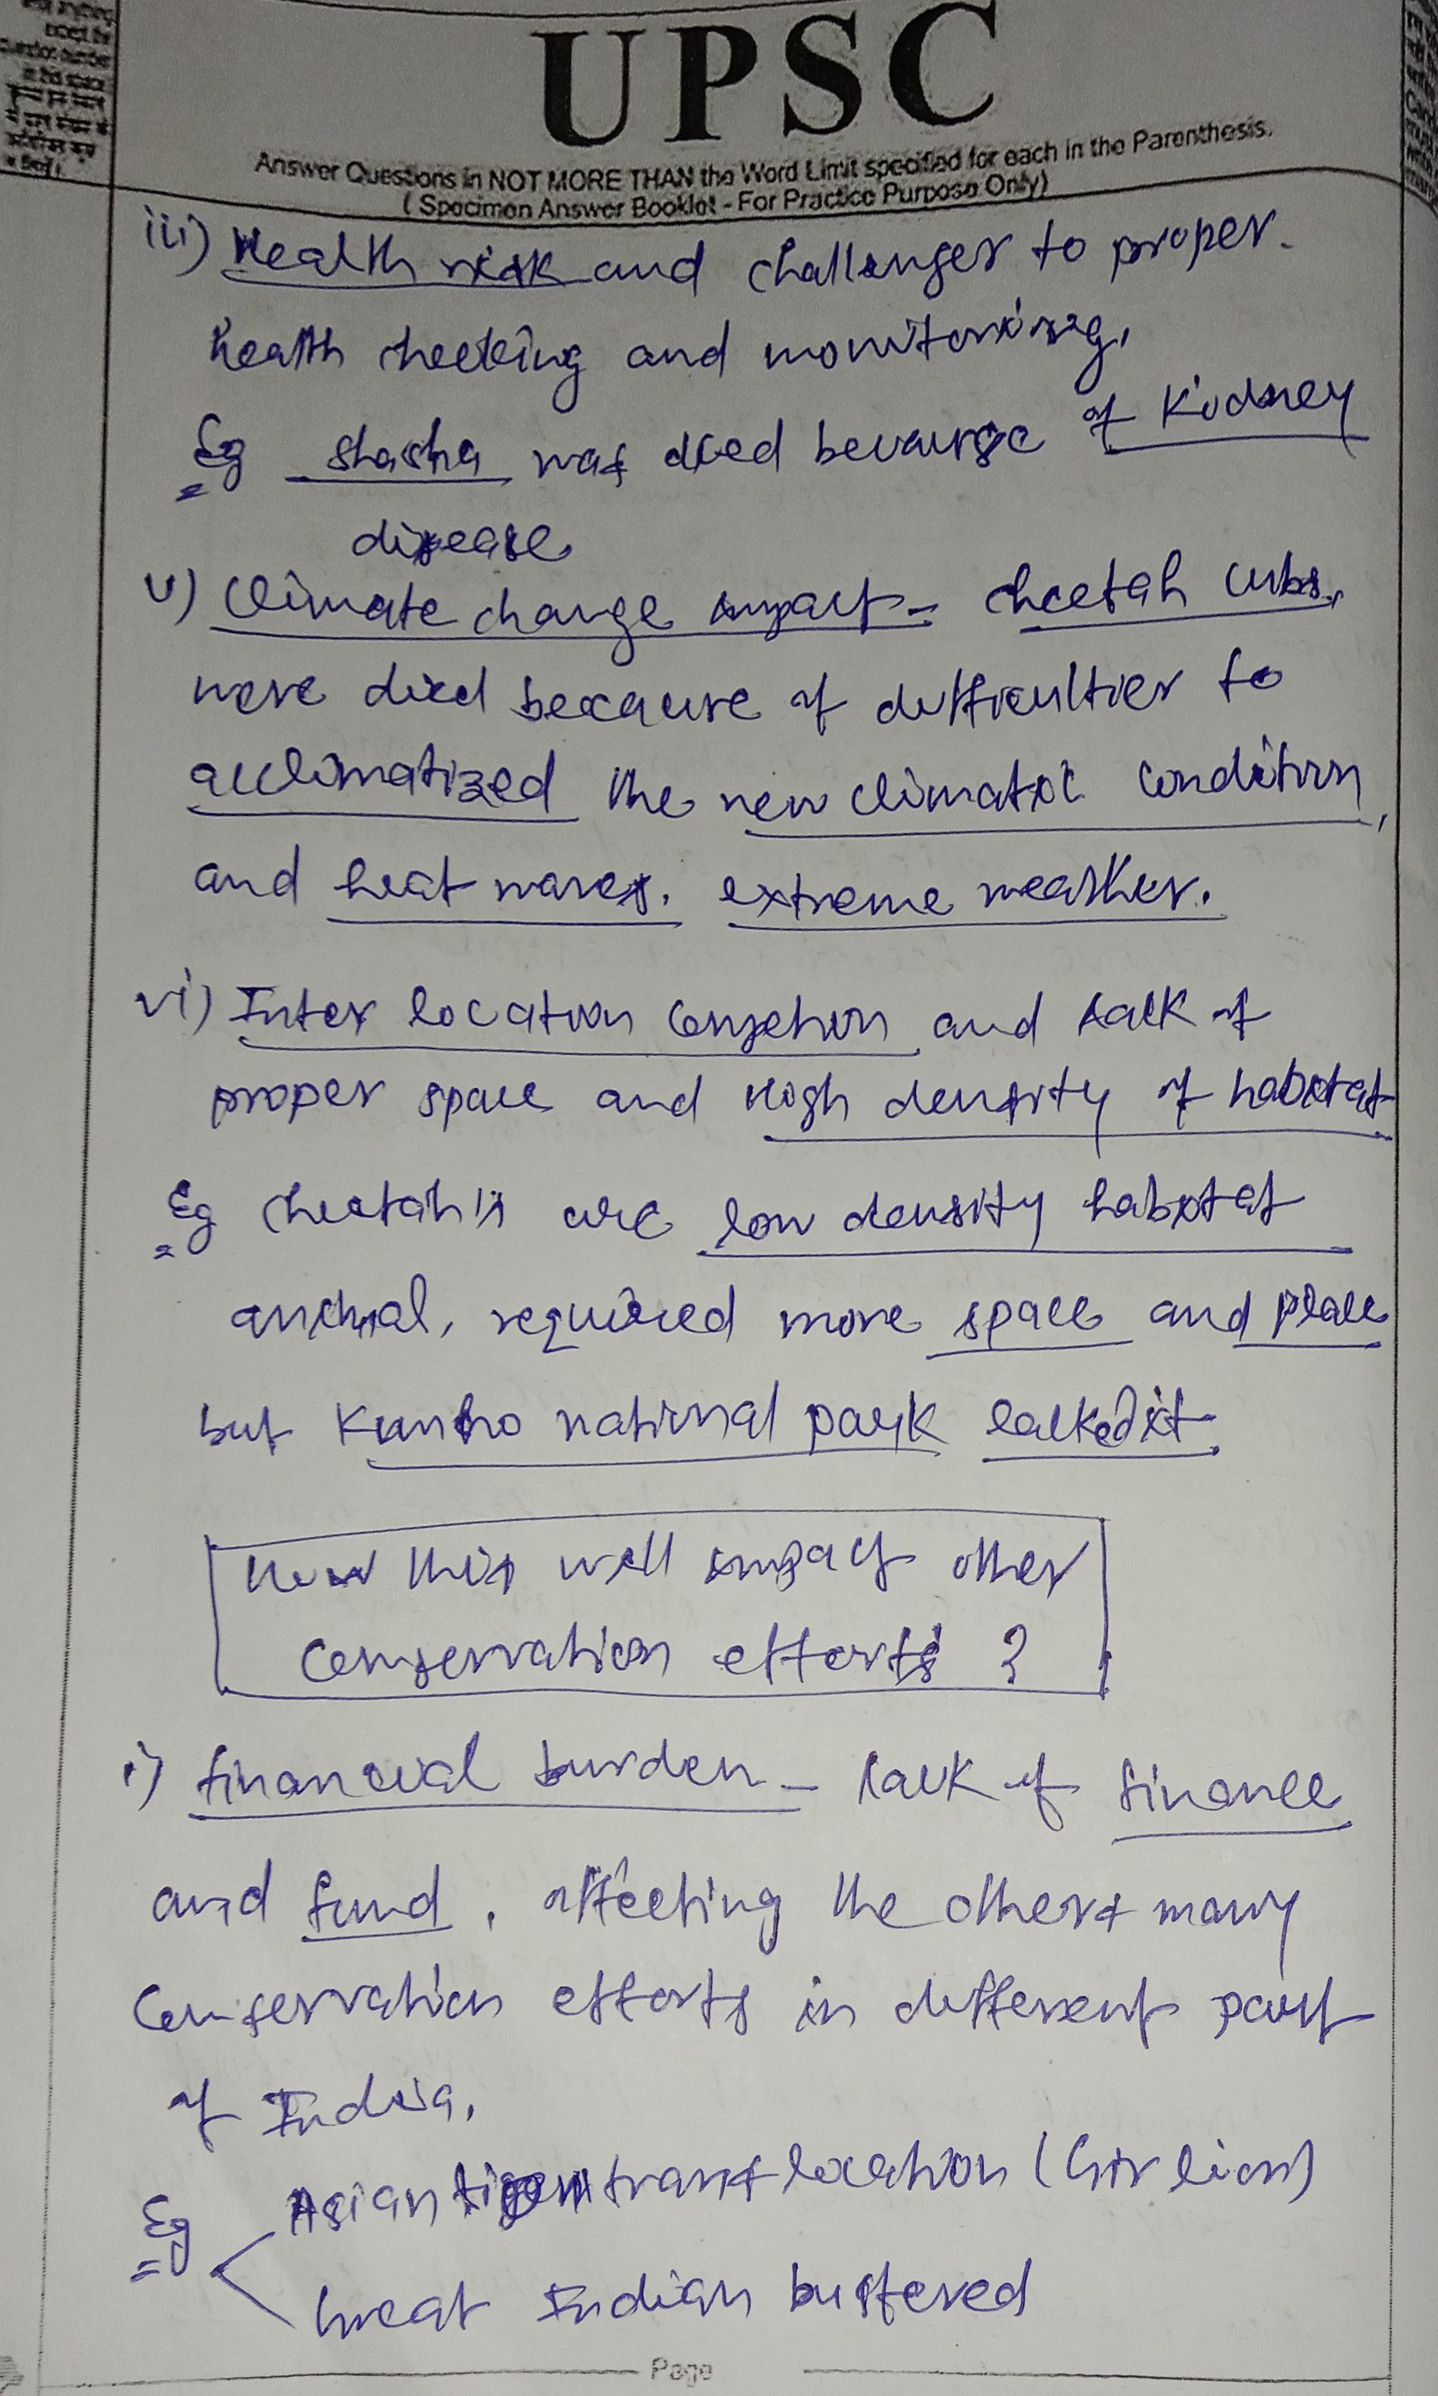 except the
question number
in this space
UPSC
Answer Questions in NOT MORE THAN the Word Limit specified for each in the Parenthesis.
( Specimen Answer Booklet - For Practice Purpose Only)
iii) Health risk and challenges to proper
health checking and monitoring,
Eg shasha was died because of Kidney
disease
v) climate change impact - cheetah cubs,
were died because of difficulties to
acclimatized the new climatic condition,
and heat waves, extreme weather.
vi) Inter location and lack of
proper space and High density of habitat
Eg cheetah's are low density habitat
animal, required more space and place
but Kunho national park lacked it.
How this will impact other
conservation efforts ?
i) financial burden - lack of finance
and fund, affecting the others many
conservation efforts in different part
of India,
Eg Asian translocation (Gir lion)
Great Indian bustered
Page